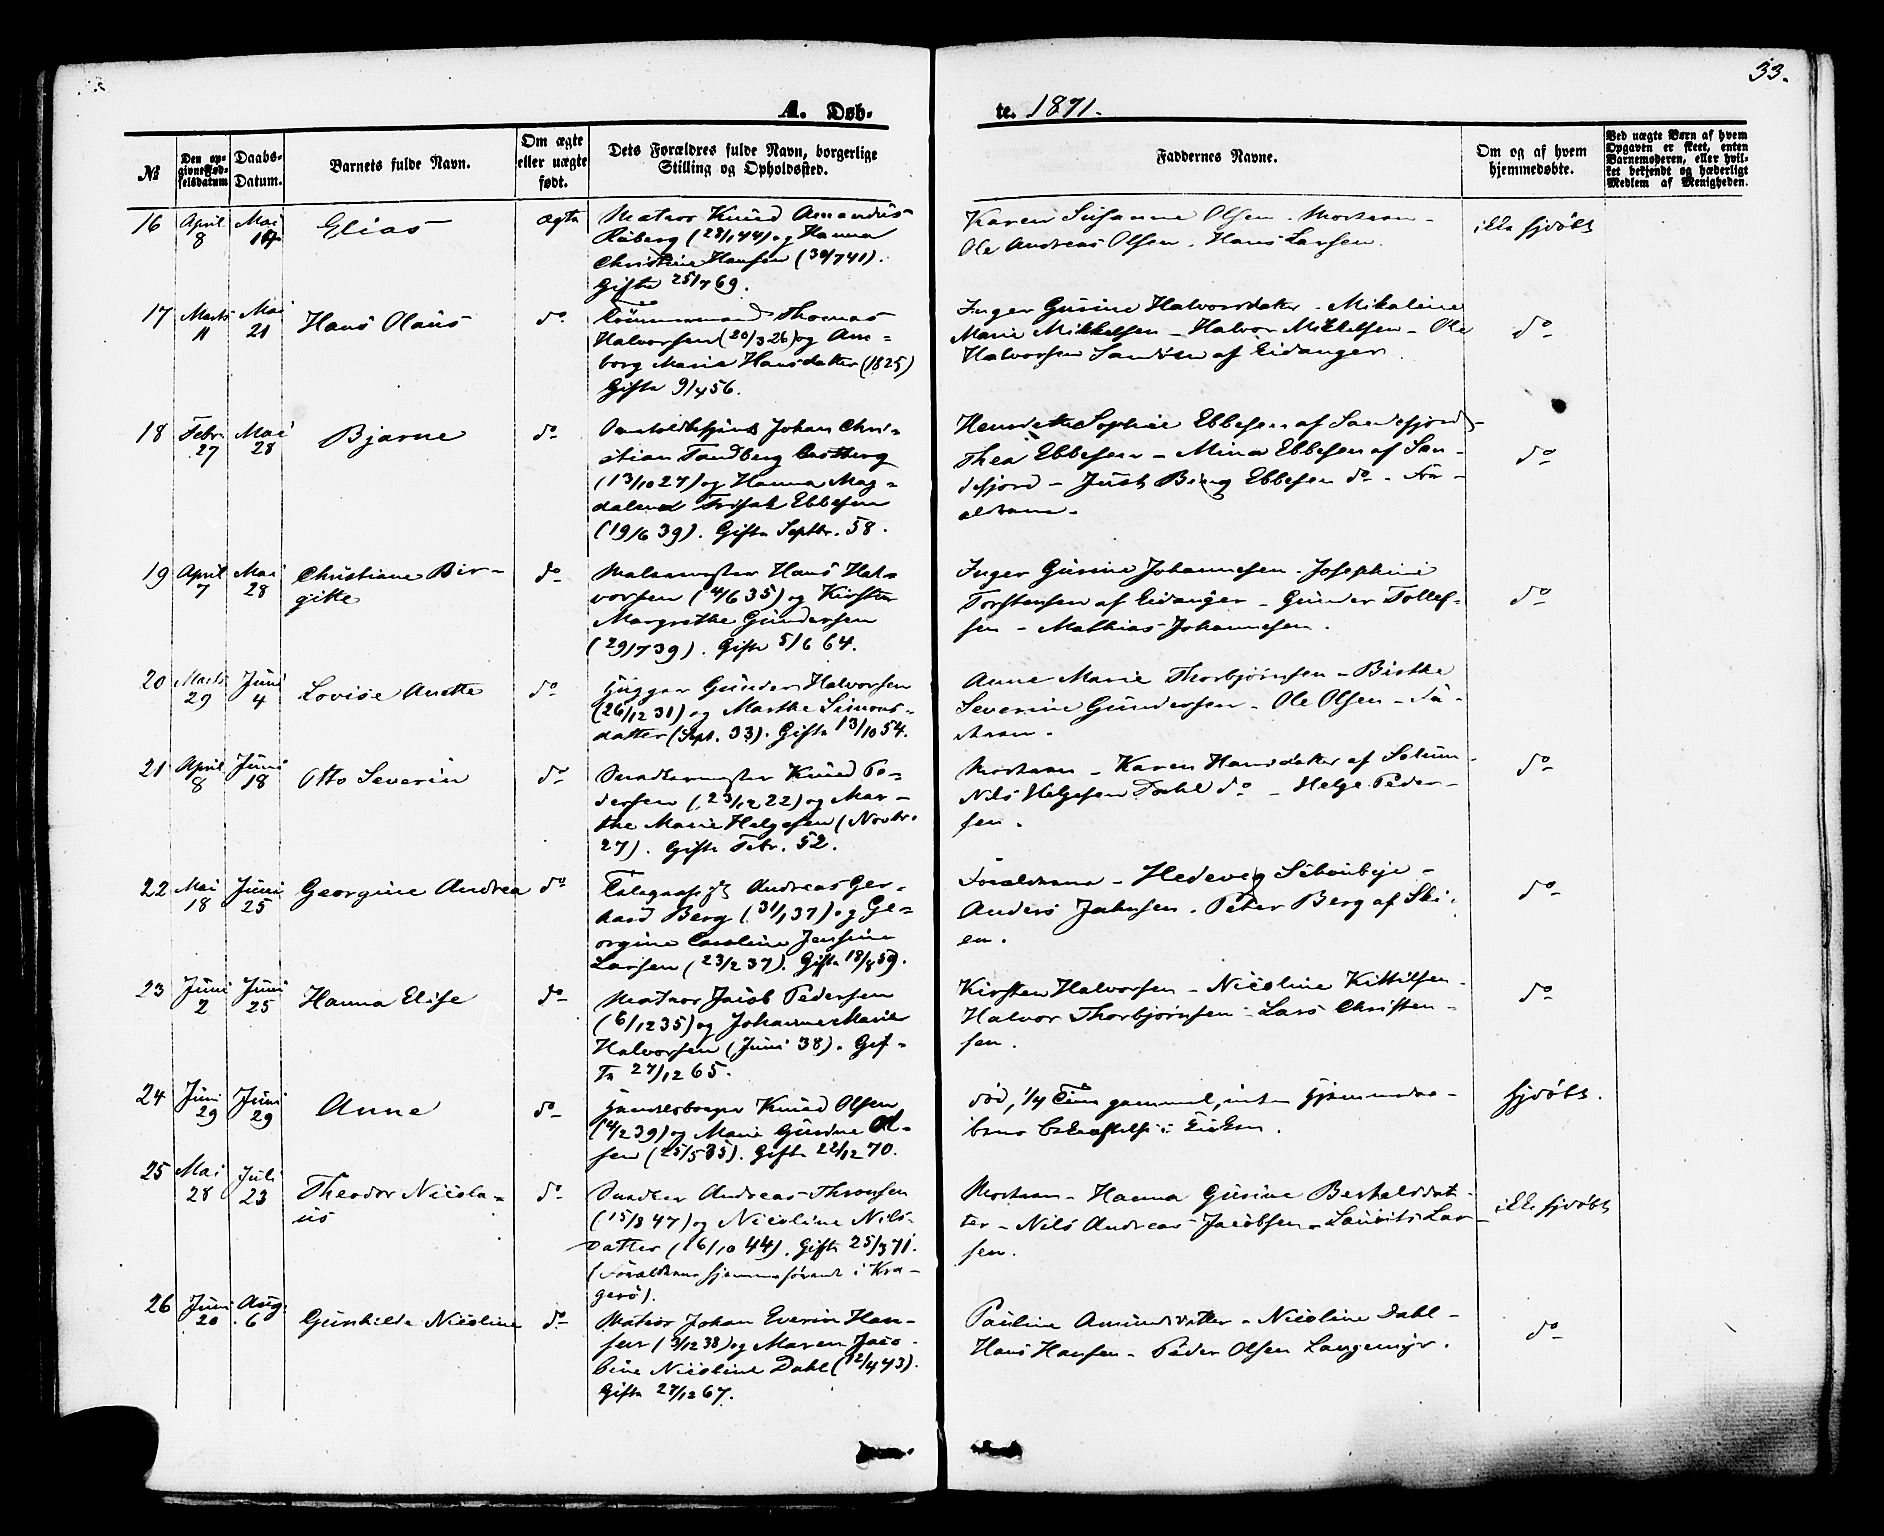 33.
A. Døb-
te. 1871.
№
Den op-
givne Fød-
selsdatum
Daabs-
Datum.
Barnets fulde Navn.
Om ægte
eller uægte
født.
Dets Forældres fulde Navn, borgerlige
Stilling og Opholdssted.
Faddernes Navne.
Om og af hvem
hjemmedøbte.
Ved uægte Børn af hvem
Opgaven er skeet, enten
Barnemoderen, eller hvil-
ket bekjendt og hæderligt
Medlem af Menigheden.
16 April 8 Mai Elias ægte Matros Knud Amandus
Råberg (28/1 44) og Hanna
Christine Hansen (30/7 41).
Gifte 25/7 69.
Karen Susanne Olsen - Moderen -
Ole Andreas Olsen - Hans Larsen.
ikke hjdøbt
17 Marts 11 Mai 21 Hans Olaus do Tømmermand Thomas
Halvorsen (20/3 26) og An-
borg Marie Hansdatter (1825)
Gifte 9/4 56.
Inger Gusine Halvorsdatter - Mikaline
Marie Mikkelsen - Halvor Mikkelsen - Ole
Halvorsen Sandøen af Eidanger.
do
18 Febr. 27 Mai 28 Bjarne do Johan Chri-
stian Tandberg Castberg
(13/10 27) og Hanna Mag-
dalena Ebbesen
(19/6 39). Gifte Septbr. 58.
Henriette Sophie Ebbesen af Sandefjord -
Thea Ebbesen - Mina Ebbesen af San-
defjord - Just Bing Ebbesen do - For-
ældrene.
do
19 April 7 Mai 28 Christiane Bir-
gitte
do Malermester Hans Hal-
vorsen (4/6 35) og Kirsten
Margrethe Gundersen
(29/7 39). Gifte 5/6 64.
Inger Gusine Johannesen - Josephine
Torstensen af Eidanger - Gunder Tollef-
sen - Mathias Johannesen.
do
20 Marts 29 Juni 4 Lovise Anette do Gunder Halvorsen
(26/12 31) og Marthe Simons-
datter (Sept. 33). Gifte 13/10 54.
Anne Marie Thorbjørnsen - Birthe
Severine Gundersen - Ole Olsen - Fa-
deren.
21 April 8 Juni 18 Otto Severin do Snedkermester Knud Pe-
dersen (23/12 22) og Mar-
the Marie Helgesen (Novbr.
27). Gifte Febr. 52.
Moderen - Karen Hansdatter af Solum -
Nils Helgesen Dahl do - Helge Peder-
sen.
do
22 Mai 18 Juni 25 Georgine Andrea do Andreas Ger-
hard Berg (31/1 37) og Ge-
orgine Caroline Jensine
Larsen (23/2 37). Gifte 18/8 59.
Forældrene - Hedevig Schønbeje -
Anders Jahnsen - Peter Berg af Ski-
en.
do
23 Juni 2 Juni 25 Hanna Elise do Matros Jacob Pedersen
(6/12 35) og Johanne Marie
Halvorsen (Juni 38). Gif-
te 27/12 65.
Kirsten Halvorsen - Nicoline Kittilsen -
Halvor Thorbjørnsen - Lars Christen-
sen.
do
24 Juni 29 Juni 29 Anne do Knud Olsen
(4/2 39) og Marie Gurine Ol-
sen (25/5 35). Gifte 22/12 70.
død, 1/4 Time gammel, uden Hjemmedaa-
bens Bekræftelse i Kirken.
hjdøbt.
25 Mai 28 Juli 23 Theodor Nicola-
us
do Snedker Andreas Thronsen
(15/8 47) og Nicoline Nils-
datter (16/10 44). Gifte 25/3 71.
(Forældrene hjemmehørende i Kra-
gerø).
Moderen - Hanna Gusine Berthelsdat-
ter - Nils Andreas Jacobsen - Laurits Lar-
sen.
ikke hjdøbt
26 Juni 20 Aug. 6 Gunhilde Nicoline do Matros Johan Everin Han-
sen (3/12 38) og Maren Jaco-
bine Nicoline Dahl (12/4 43).
Gifte 27/12 67.
Pauline Amundsdatter - Nicoline Dahl -
Hans Hansen - Peder Olsen Langemyr.
do